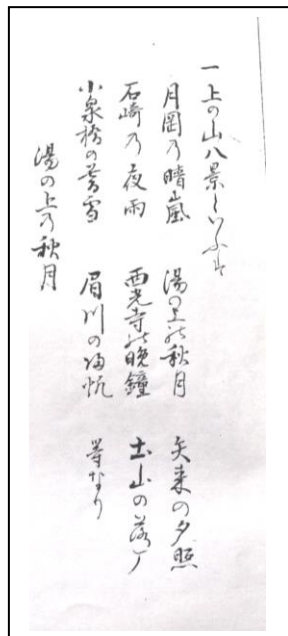 一上の山八景といふは
月岡乃晴嵐 湯の上の秋月 矢来の夕照
石崎乃夜雨 西光寺の晩鐘 土山の落丁
小泉橋の暮雪 眉川の帰帆 等なり
湯の上乃秋月